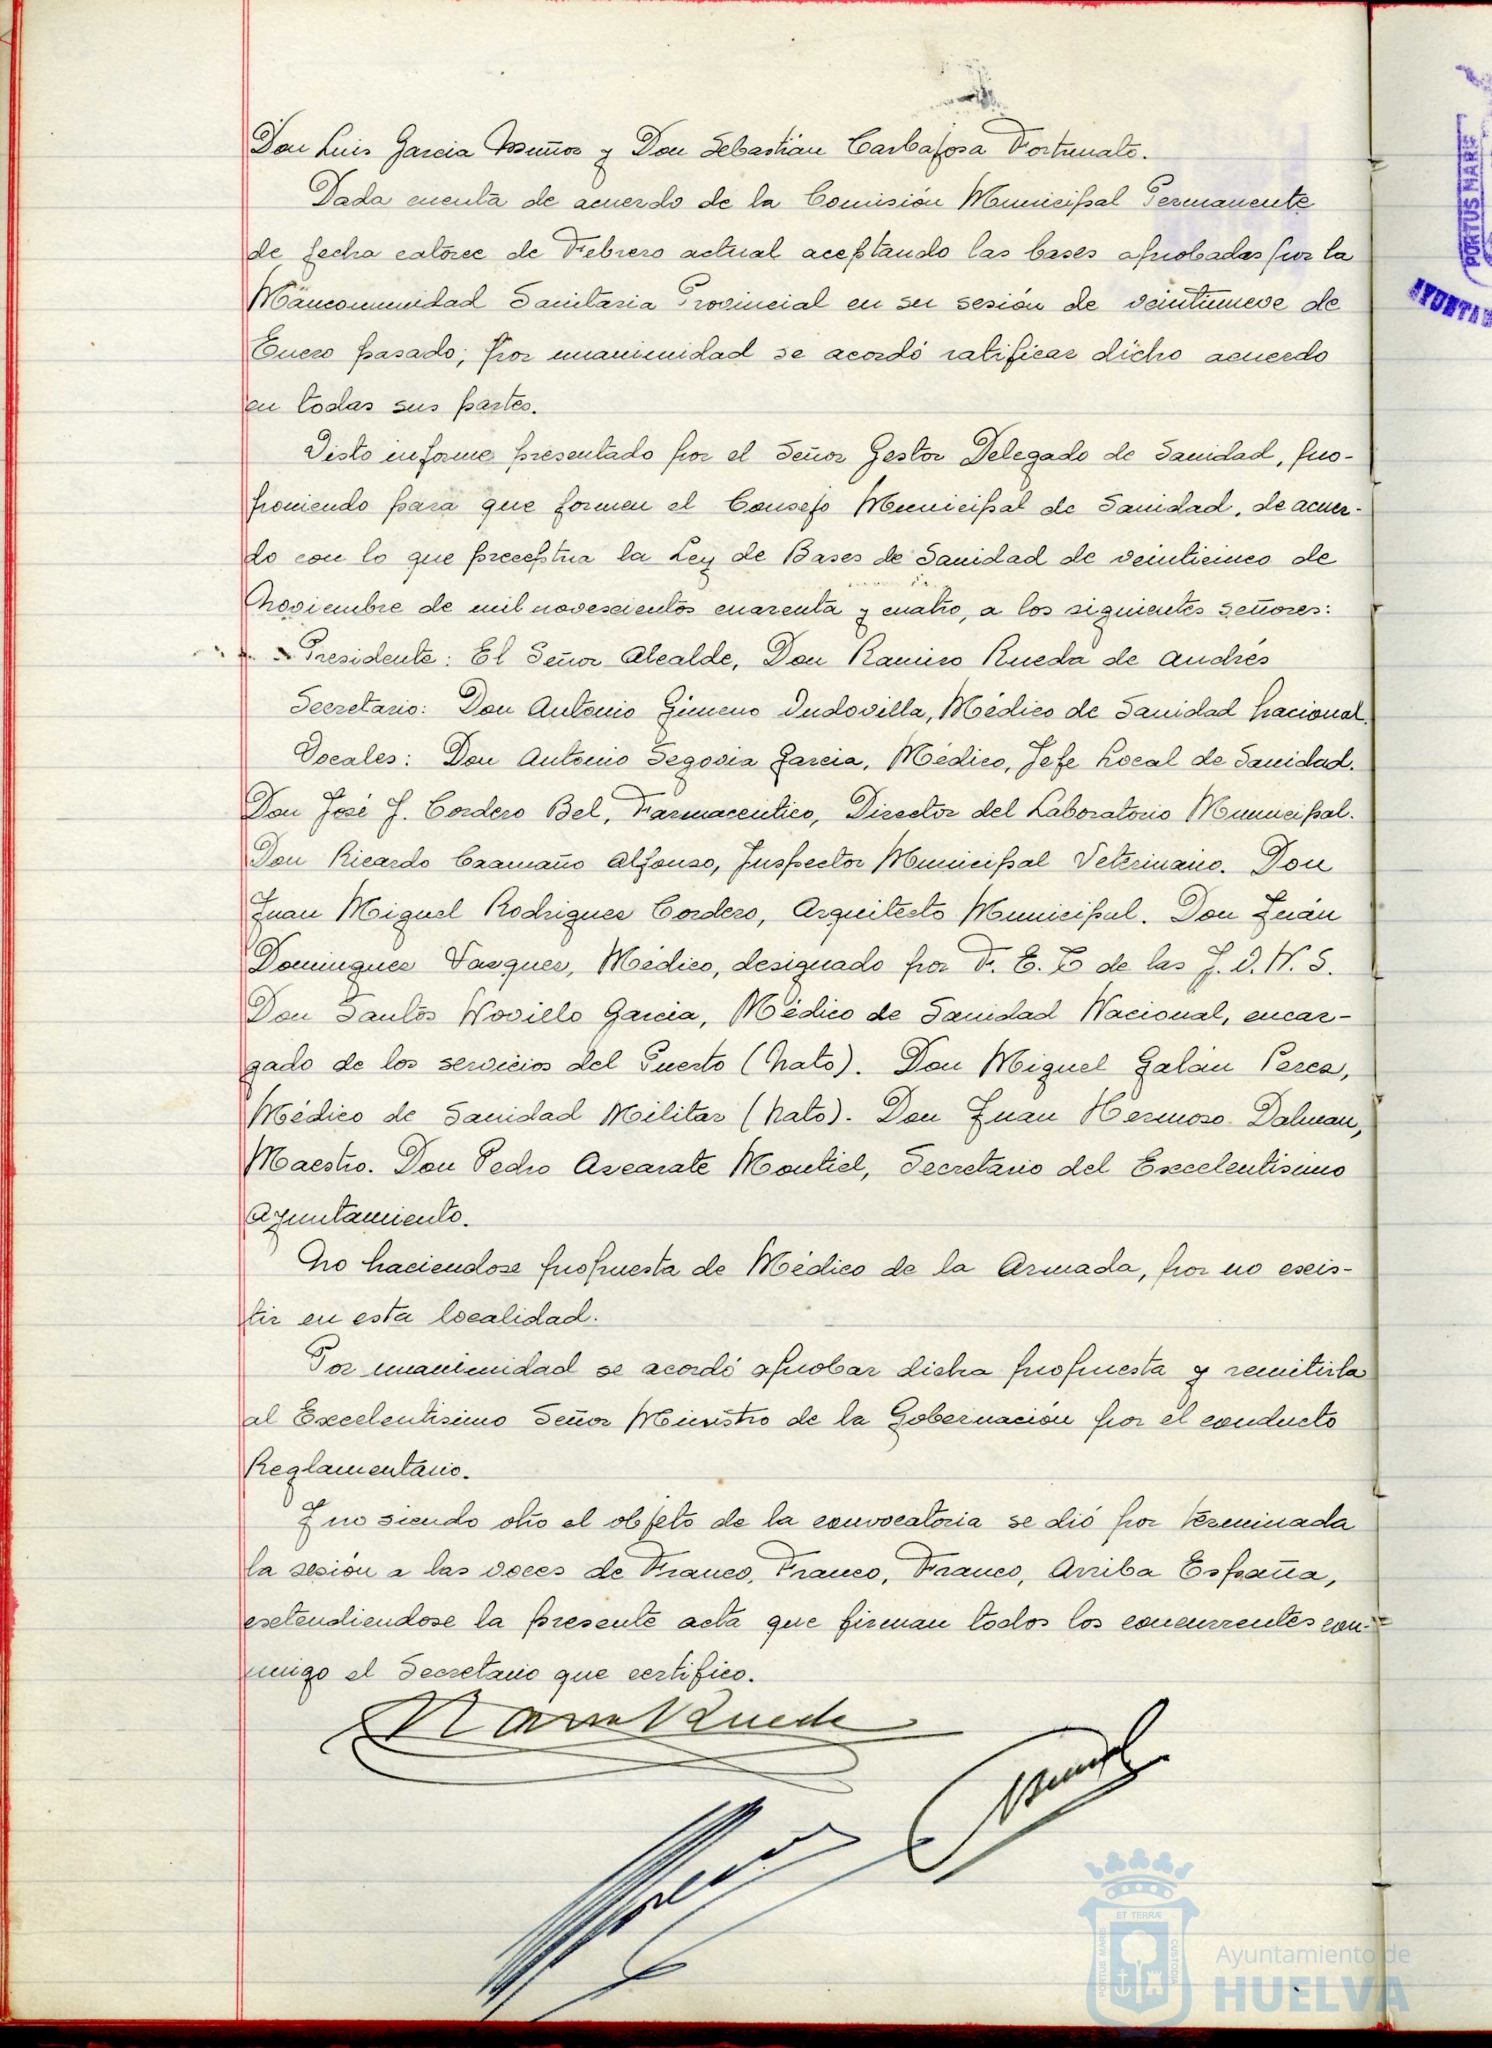 Don Luis Garcia Muñoz y Don Sebastián Carbajosa Fortunato.
Dada cuenta de acuerdo de la Comisión Municipal Permanente
de fecha catorce de Febrero actual aceptando las bases aprobadas por la
Mancomunidad Sanitaria Provincial en su sesión de veintinueve de
Enero pasado; por unanimidad se acordó ratificar dicho acuerdo
en todas sus partes.
Visto informe presentado por el Señor Gestor Delegado de Sanidad, pro-
poniendo para que formen el Consejo Municipal de Sanidad, de acuer-
do con lo que preceptua la Ley de Bases de Sanidad de veinticinco de
Noviembre de mil novescientos cuarenta y cuatro, a los siguientes señores:
Presidente: El Señor Alcalde, Don Ramiro Rueda de Andrés
Secretario: Don Antonio Gimeno Ondovilla, Médico de Sanidad Nacional.
Vocales: Don Antonio Segovia Garcia, Médico, Jefe Local de Sanidad.
Don José J. Cordero Bel, Farmaceutico, Director del Laboratorio Municipal.
Don Ricardo Caamaño Alfonso, Inspector Municipal Veterinario. Don
Juan Miguel Rodriguez Cordero, Arquitecto Municipal. Don Juán
Dominguez Vazquez, Médico, designado por F. E. T de las J. O. N. S.
Don Santos Novillo Garcia, Médico de Sanidad Nacional, encar-
gado de los servicios del Puerto (Nato). Don Miguel Galán Perez,
Médico de Sanidad Militar (Nato). Don Juan Hermoso Dalman,
Maestro. Don Pedro Azcarate Montiel, Secretario del Excelentisimo
Ayuntamiento.
No haciendose propuesta de Médico de la Armada, por no exis-
tir en esta localidad.
Por unanimidad se acordó aprobar dicha propuesta y remitirla
al Excelentisimo Señor Ministro de la Gobernación por el conducto
Reglamentario.
Y no siendo otro el objeto de la convocatoria se dió por terminada
la sesión a las voces de Franco, Franco, Franco, Arriba España,
extendiendose la presente acta que firman todos los concurrentes con-
migo el Secretario que certifico.
PORTUS MARIS
Ramiro Rueda
ET TERRÆ
PORTUS MARIS
CUSTODIA
Ayuntamiento de
HUELVA